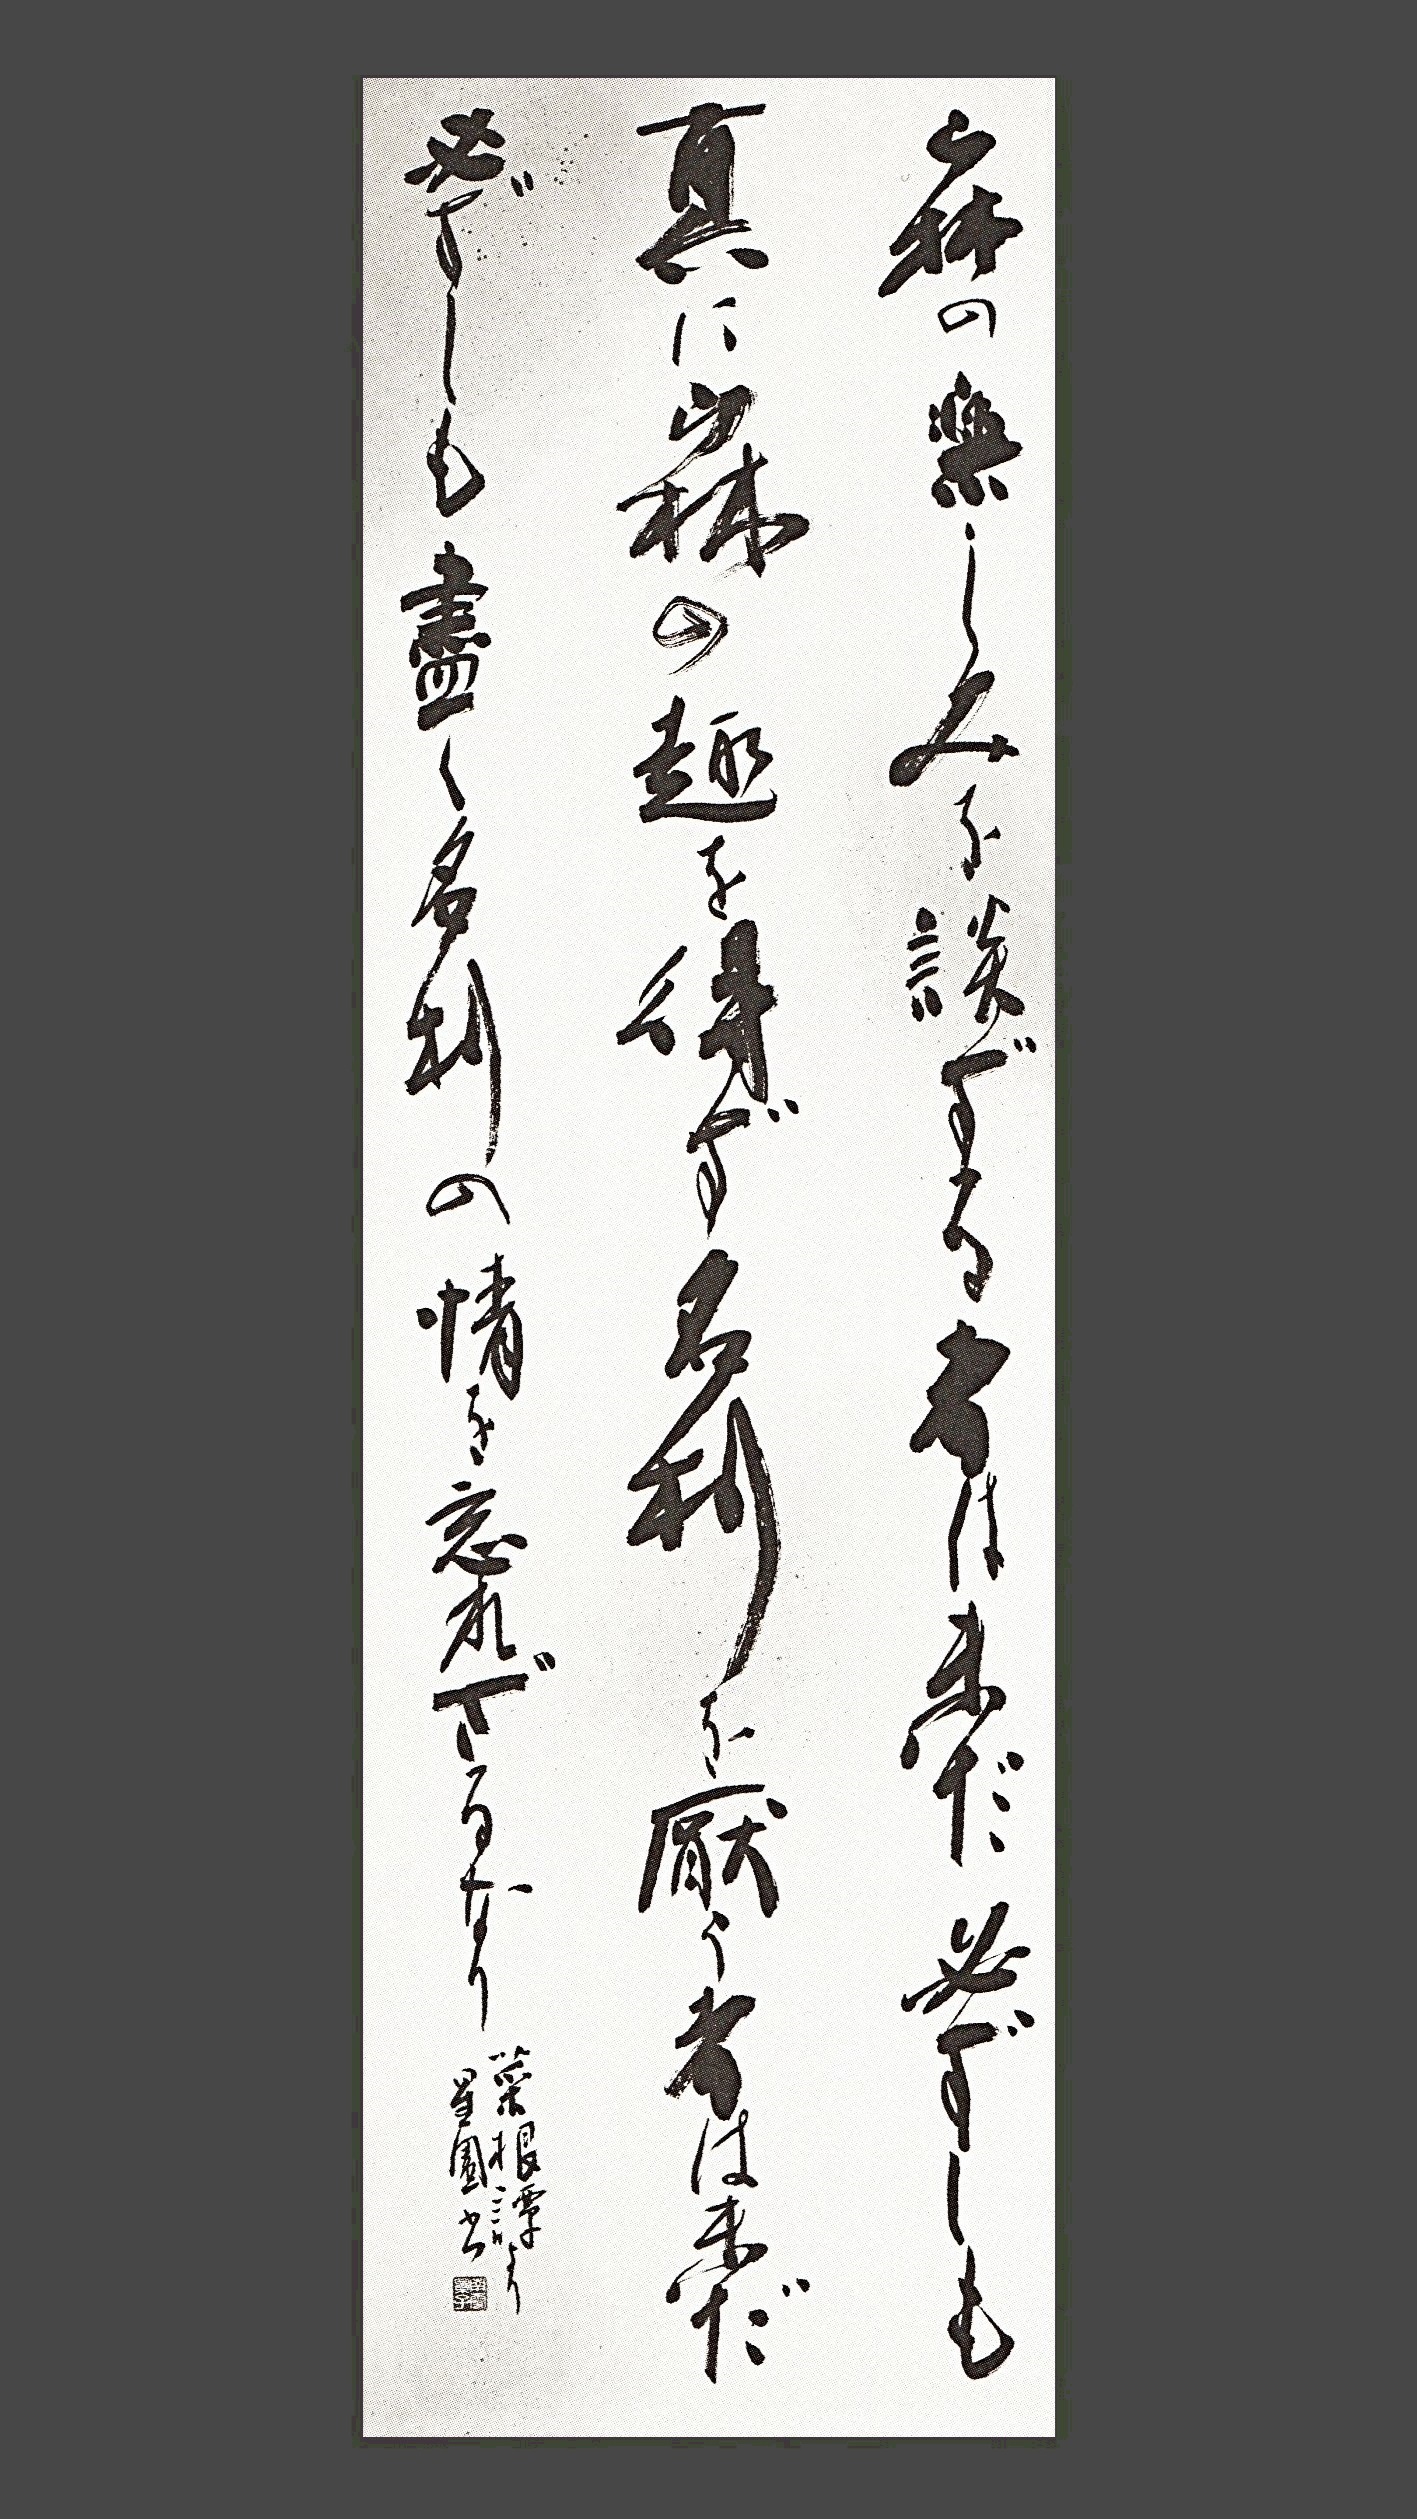 山林の楽しみを談ずる者は未だ必ずしも
真に山林の趣を得ず名利を厭う者は未だ
必ずしも盡く名利の情を忘れざるなり
菜根譚より
星園書